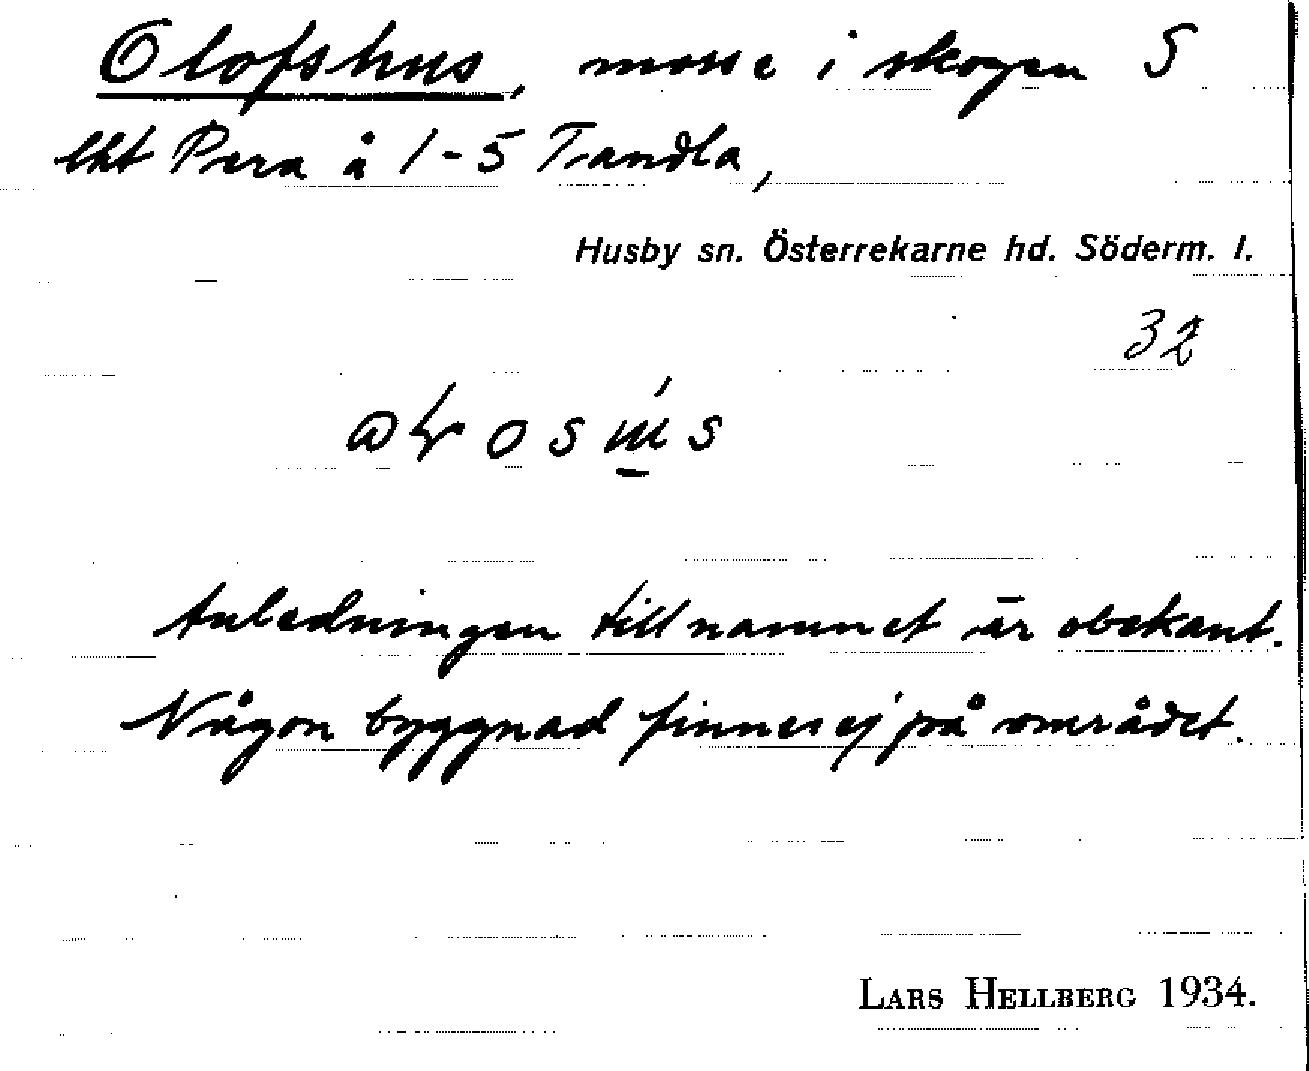 Olofshus, mosse i skogen S
lht Pera å 1-5 Tandla,
Husby sn. Österrekarne hd. Söderm. l.
32
Anledningen till namnet är obekant.
Någon byggnad finnes ej på området.
LARS HELLBERG 1934.